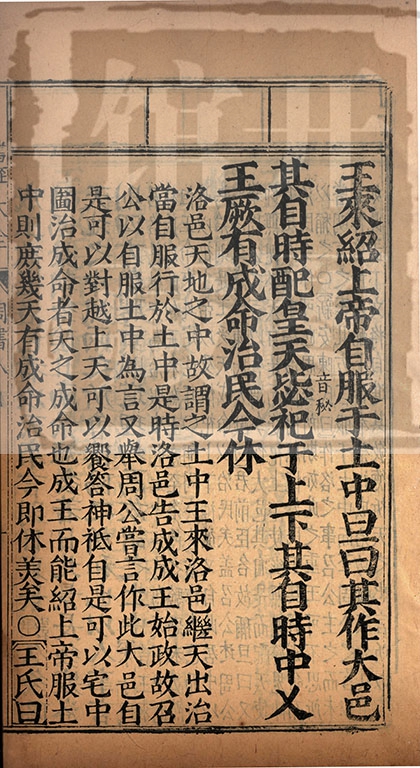 王來紹上帝自服于土中旦曰其作大邑
其自時配皇天毖祀于上下其自時中乂
音秘
王厥有成命治民今休
洛邑天地之中故謂之土中王來洛邑繼天出治
當自服行於土中是時洛邑告成成王始政故召
公以自服土中為言又舉周公嘗言作此大邑自
是可以對越上天可以饗答神祗自是可以宅中
圖治成命者天之成命也成王而能紹上帝服土
中則庶幾天有成命治民今即休美矣○王氏曰